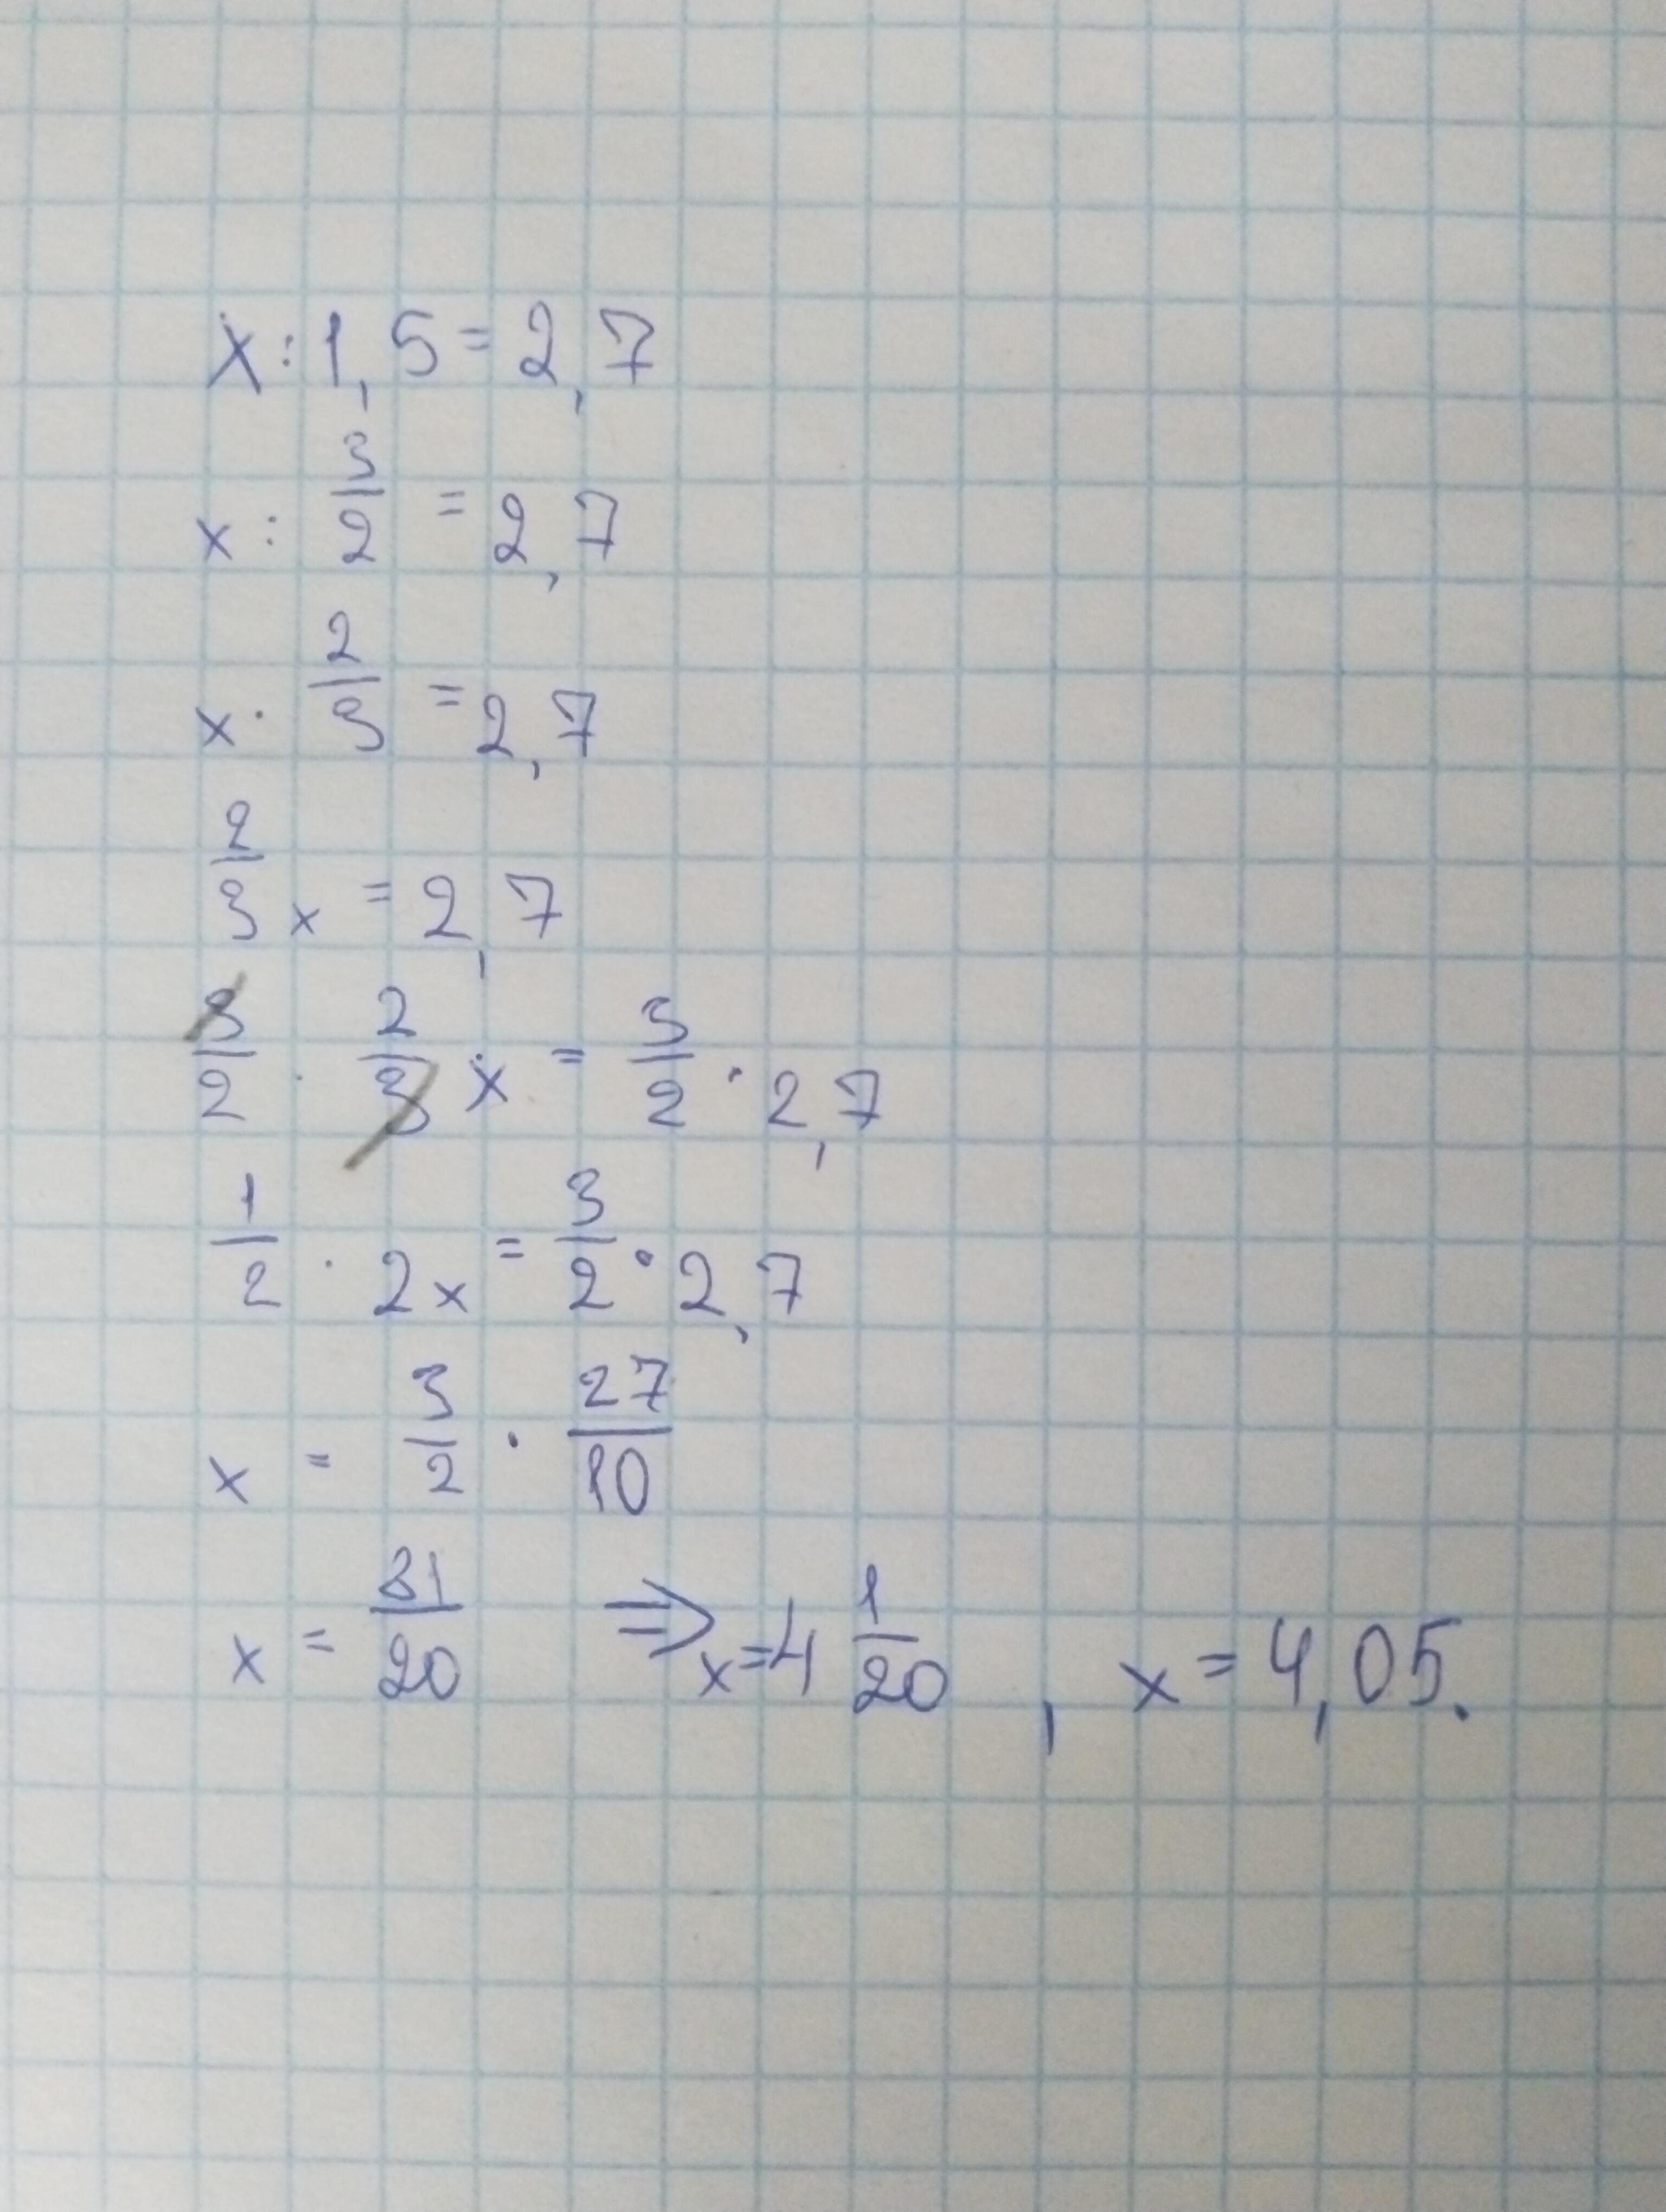 x : 1,5 = 2,7
x : 3/2 = 2,7
x · 2/3 = 2,7
2/3 x = 2,7
3/2 · 2/3 x = 3/2 · 2,7
1/2 · 2x = 3/2 · 2,7
x = 3/2 · 27/10
x = 81/20 ⇒ x = 4 1/20 , x = 4,05.